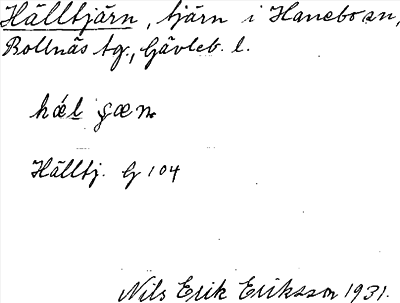 Hälltjärn, tjärn i Hanebo sn,
Bollnäs tg., Gävleb. l.
hǽl
Hälltj. G 104
Nils Erik Eriksson 1931.